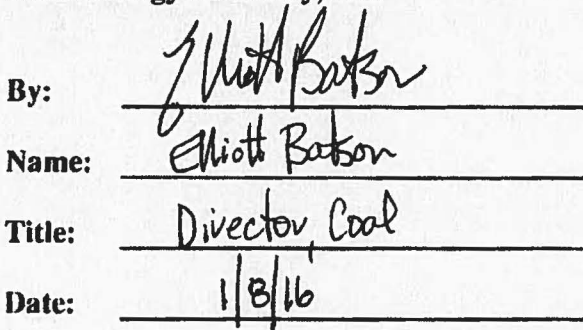 By: Elliott Batson
Name: Elliott Batson
Title: Director, Coal
Date: 1/8/16